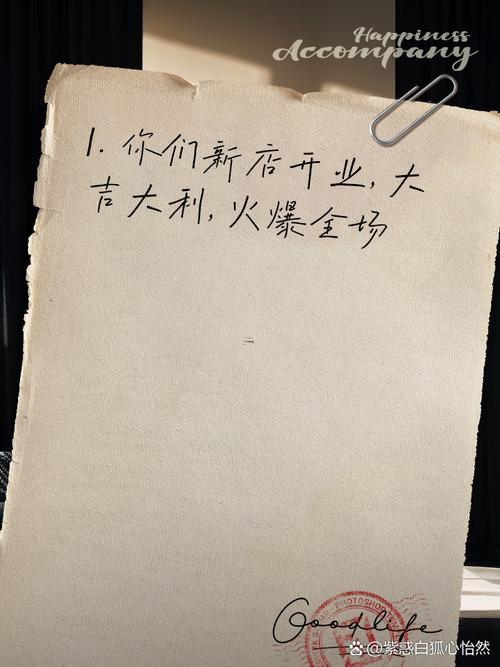 Happiness
Accompany
1. 你们新店开业,大
吉大利,火爆全场
Goodlife
PHOTOSHOP
@紫惑白狐心怡然